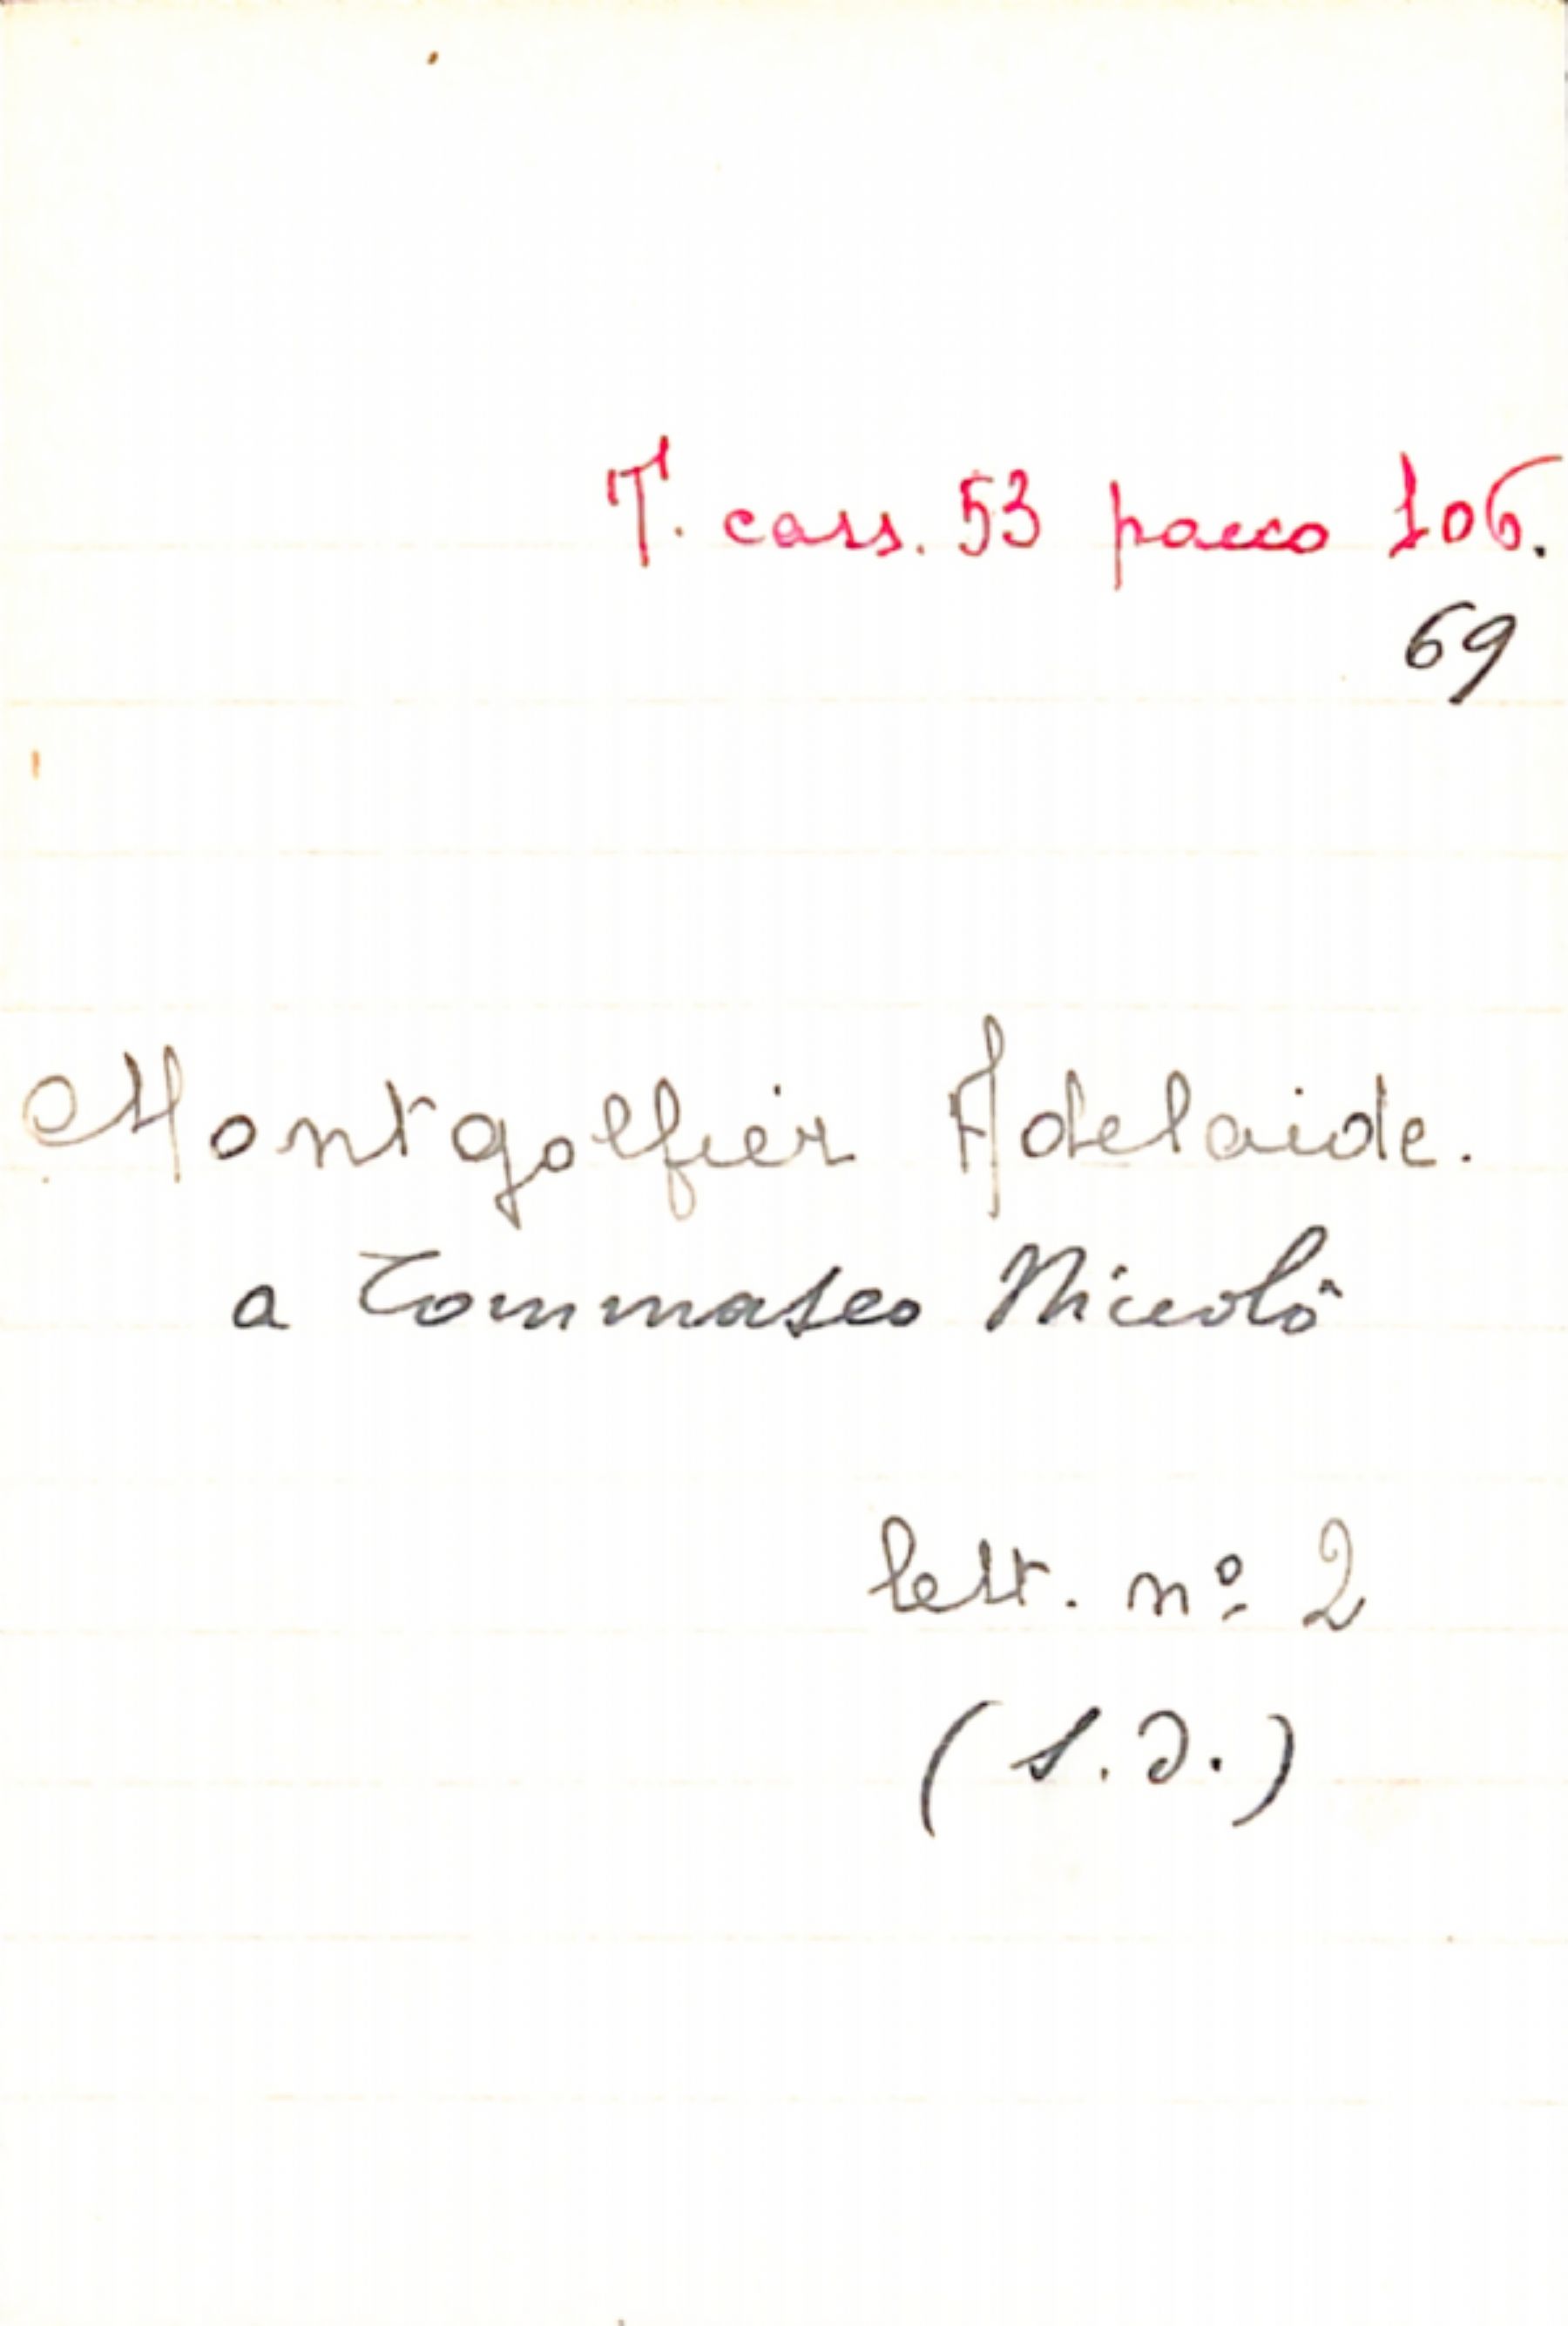 T. cass. 53 pacco 106.
69
Montgolfier Adelaide.
a Tommaseo Niccolò
lett. nº 2
(s.d.)